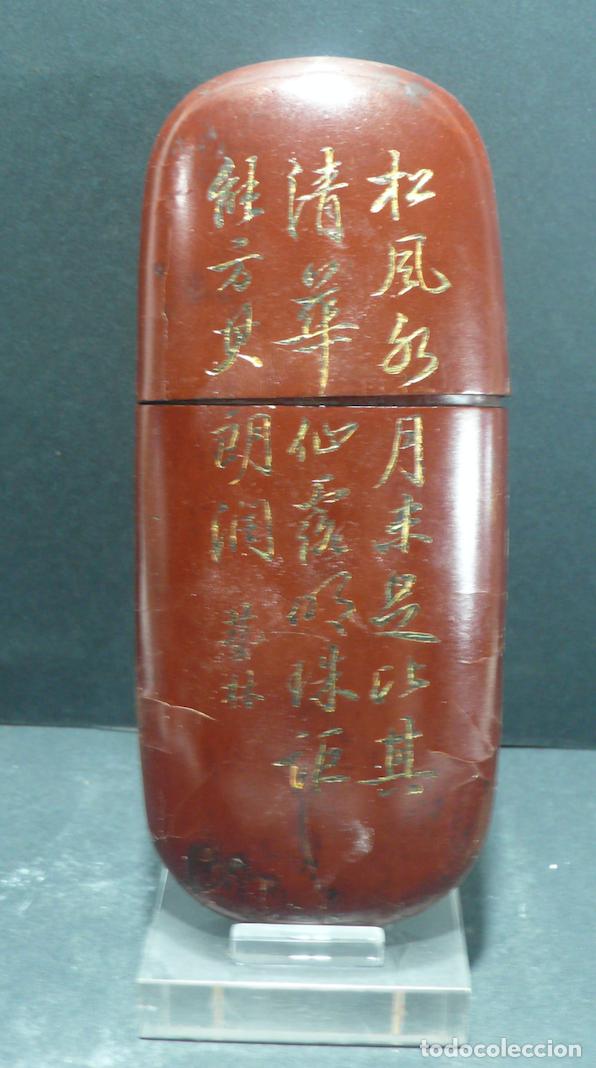 松風水月未足比其
清華仙露明珠詎
能方其朗潤
藝林
todocoleccion